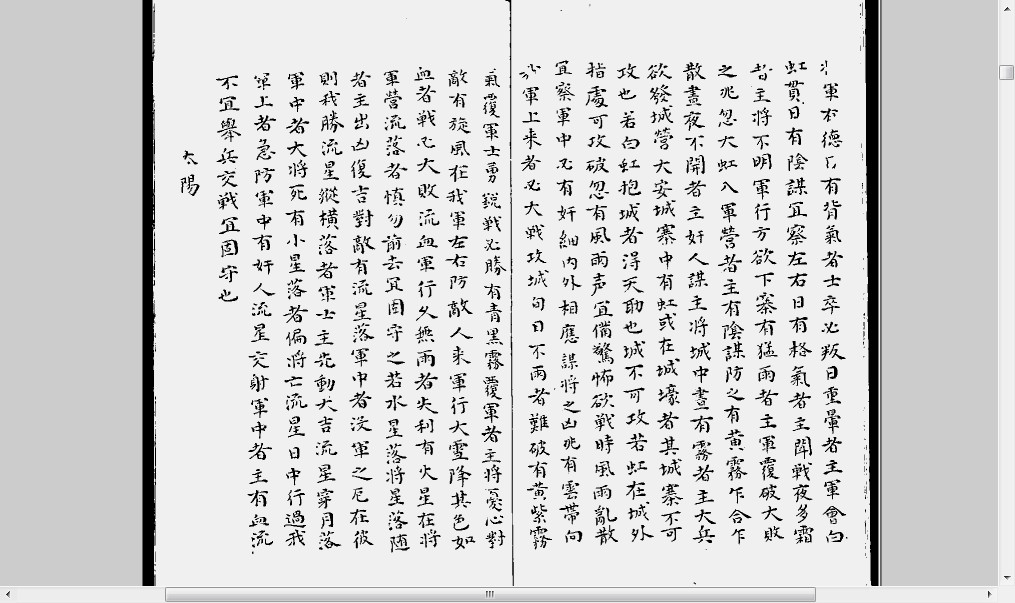 軍有德卩有背氣者士卒必叛日重暈者主軍會白
虹貫日有陰謀宜察左右日有格氣者主鬪戰夜多霜
者主將不明軍行方欲下寨有猛雨者主軍覆破大敗
之兆忽大虹入軍營者主有陰謀防之有黃霧乍合乍
散晝夜不開者主奸人謀主將城中晝有霧者主大兵
欲發城營大安城寨中有虹或在城壕者其城寨不可
攻也若白虹抱城者得天助也城不可攻若虹在城外
指處可攻破忽有風雨声宜備驚怖欲戰時風雨亂散
宜察軍中必有奸細內外相應謀將之凶兆有雲帶向
我軍上来者必大戰攻城旬日不雨者難破有黃紫霧
氣覆軍士勇銳戰必勝有青黑霧覆軍者主將憂心對
敵有旋風在我軍左右防敵人来軍行大雪降其色如
血者戰必大敗流血軍行久無雨者失利有火星在將
軍營流落者慎勿前去宜固守之若水星落將星落隨
者主出凶復吉對敵有流星落軍中者沒軍之厄在彼
則我勝流星縱橫落者軍士主先動大吉流星穿月落
軍中者大將死有小星落者偏將亡流星日中行過我
軍上者急防軍中有奸人流星交射軍中者主有血流
不宜舉兵交戰宜固守也
太陽